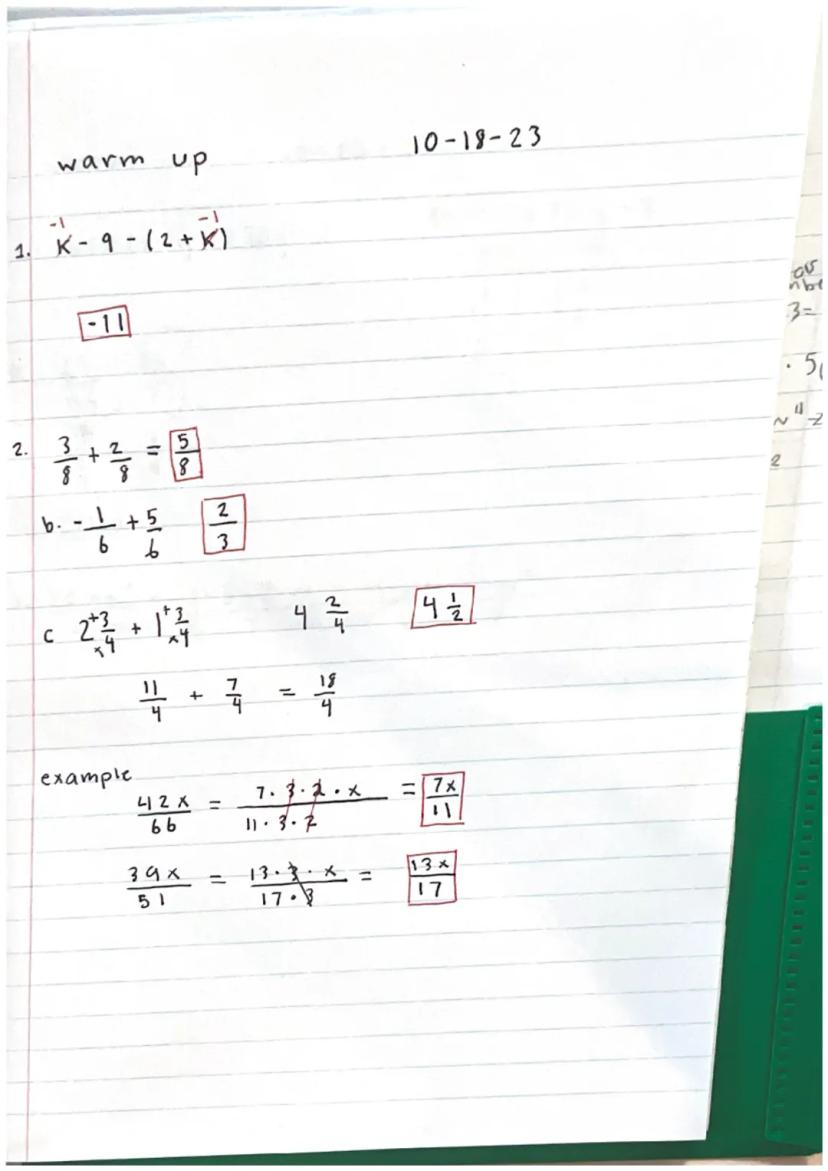 warm up 10-18-23
-1 -1
1. K - 9 - (2 + K)
-11
2. 3/8 + 2/8 = 5/8
b. - 1/6 + 5/6 2/3
c 2 + 3/x4 + 1 + 3/x4 4 2/4 4 1/2
11/4 + 7/4 = 18/4
example
42x/66 = 7·3·2·x/11·3·2 = 7x/11
39x/51 = 13·3·x/17·3 = 13x/17
3=